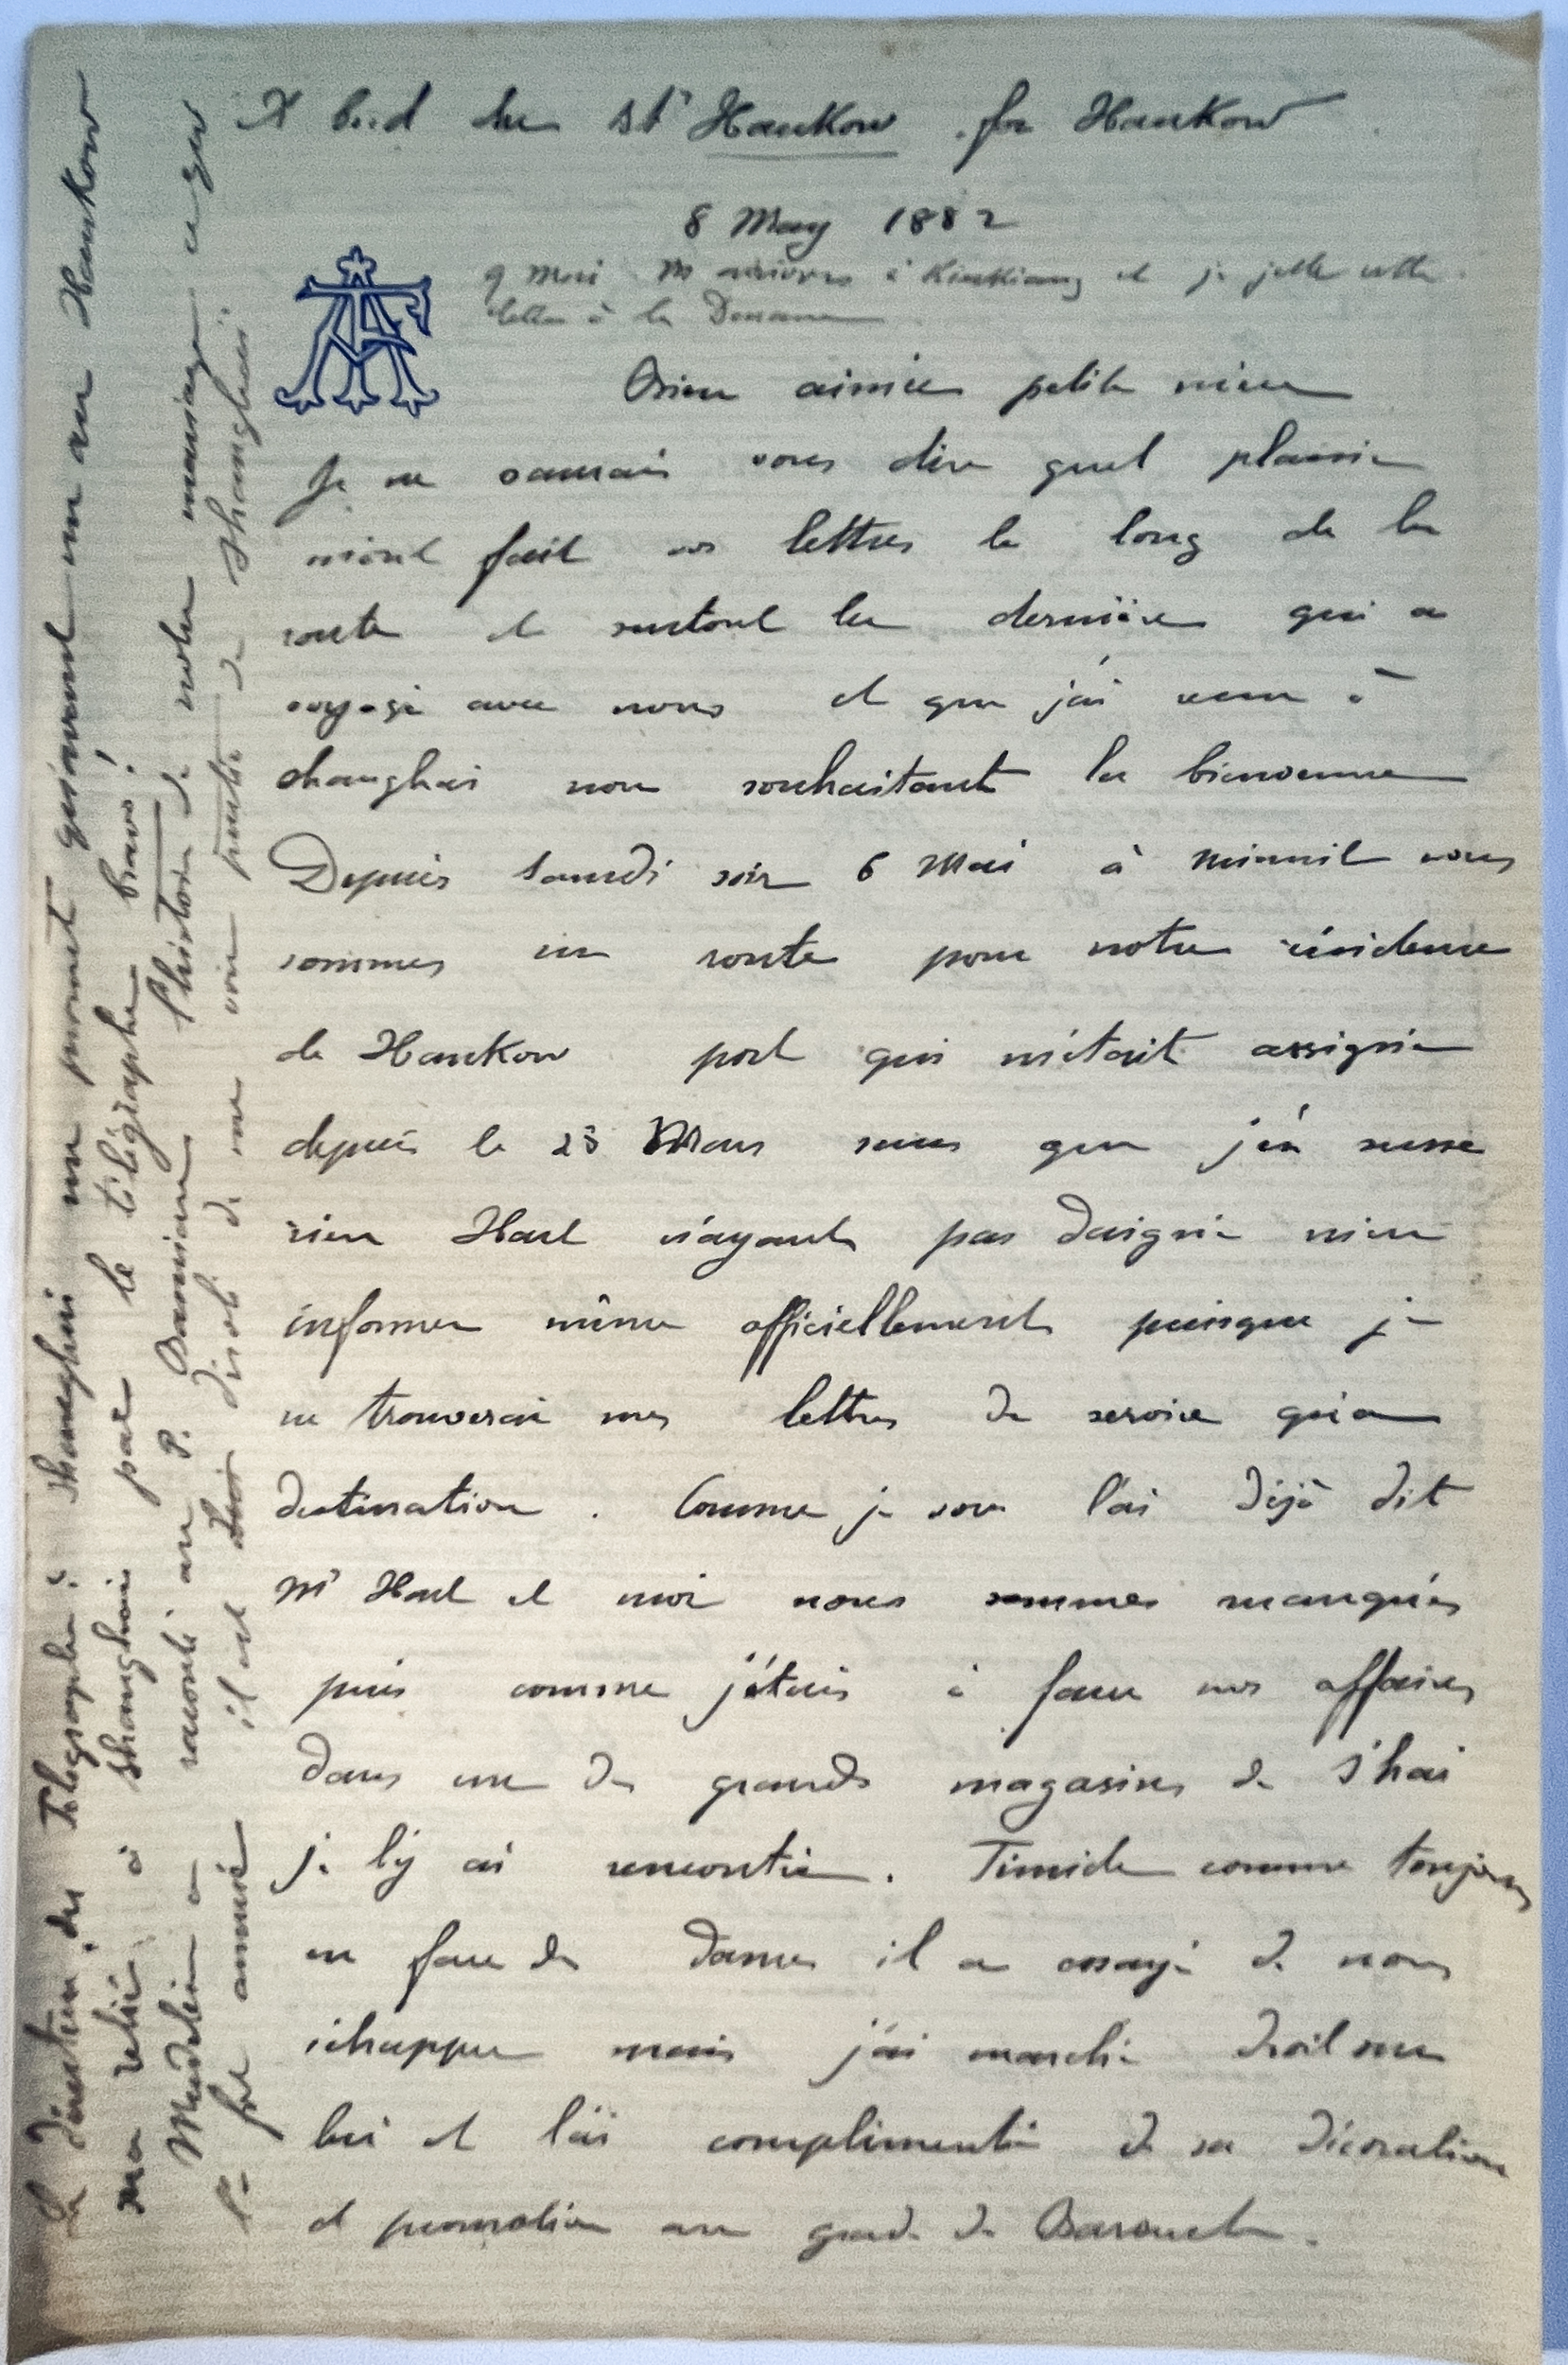 A bord du Str Hankow for Hankow
8 May 1882
9 Mai Ns arrivons à Kiukiang et je jette cette
lettre à la Douane
AF
Bien aimée petite mère
Je ne saurais vous dire quel plaisir
m'ont fait vos lettres le long de la
route et surtout la dernière qui a
voyagé avec nous et que j'ai reçu à
Shanghai nous souhaitant la bienvenue
Depuis Samedi soir 6 Mai à minuit nous
sommes en route pour notre résidence
de Hankow port qui m'était assigné
depuis le 23 Mars sans que j'en susse
rien Hart n'ayant pas daigné m'en
informer même officiellement puisque je
ne trouverai mes lettres de service qu'à
destination. Comme je vous l'ai déjà dit
Mr Hart et moi nous sommes manqués
puis comme j'étais à faire mes affaires
dans un des grands magasins de S'hai
je l'y ai rencontré. Timide comme toujours
en face des dames il a essayé de nous
échapper mais j'ai marché droit sur
lui et l'ai complimenté de sa décoration
et promotion au grade de Baronet.
La direction du Telegraphe à Shanghai me promet qu'avant un an Hankow
sera relié à Shanghai par le télégraphe bravo!
Médelin a raconté au P. l'histoire de notre mariage ce qui
l'a fort amusé il est disolé de me voir partir de Shanghai.